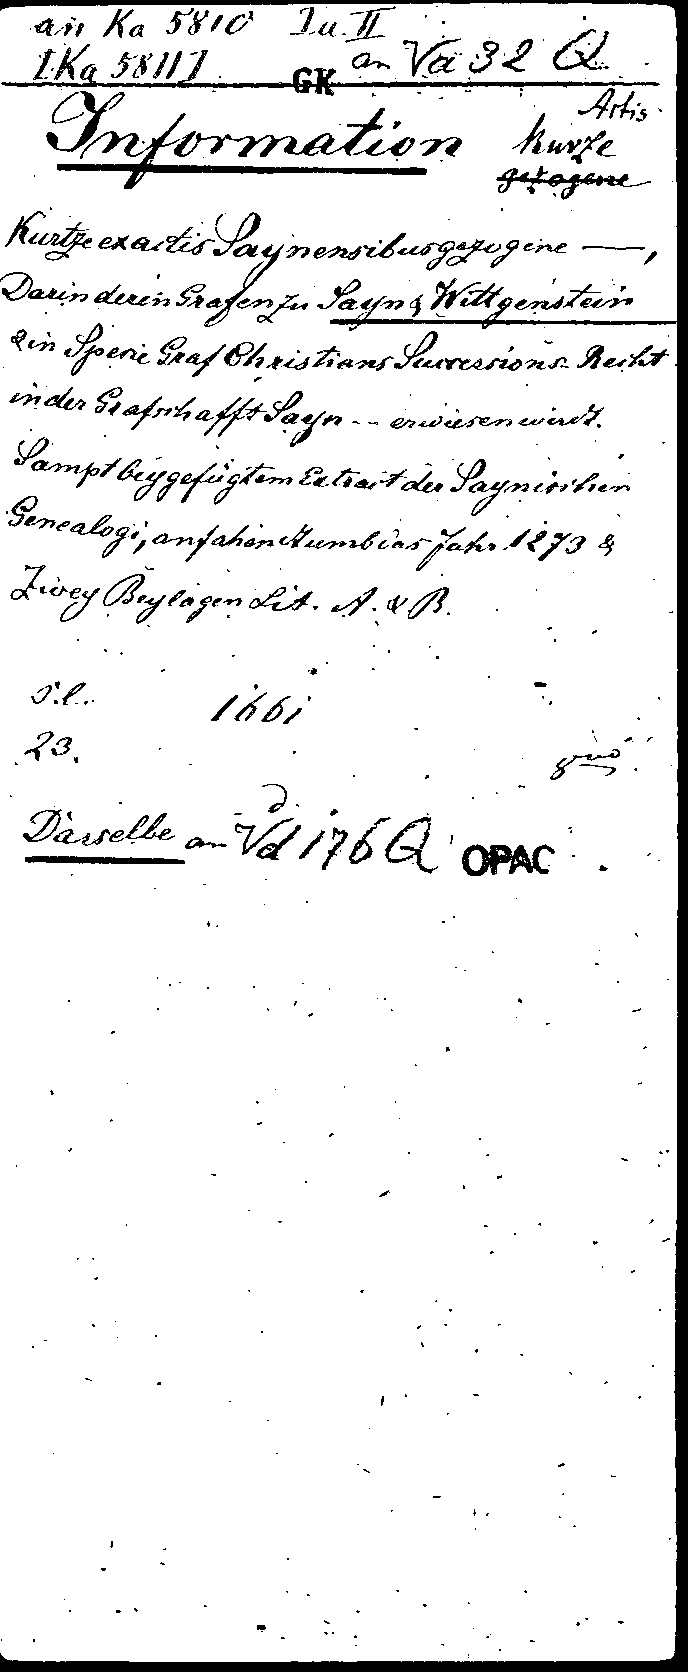 an Ka 5810 I u. II
[Ka 5811] an Va 32 Q
GK
Artis
Information kurze
gezogene
Kurtze ex actis Saynensibus gezogene —,
Darin deren Grafen zu Sayn & Wittgenstein
& in Specie Graf Christians Successions-Recht
in der Grafschafft Sayn -- erwiesen wirdt.
Sampt beygefügtem Extract der Saynischen
Genealogi, anfahendt umb das Jahr 1273 &
Zwey Beylagen Lit. A. & B.
s.l. 1661
23.
Dasselbe an Vd 176 Q OPAC